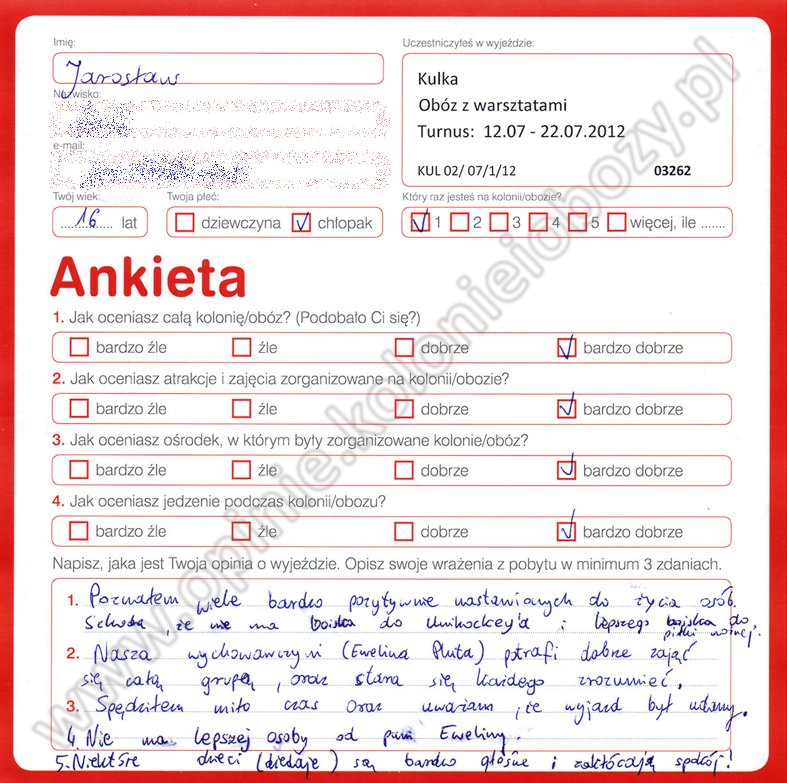 Imię:
Jarosław
Nazwisko:
e-mail:
Uczestniczyłeś w wyjeździe:
Kulka
Obóz z warsztatami
Turnus: 12.07 - 22.07.2012
KUL 02/ 07/1/12 03262
Twój wiek: Twoja płeć: Który raz jesteś na kolonii/obozie?
16 lat dziewczyna chłopak 1 2 3 4 5 więcej, ile .......
Ankieta
1. Jak oceniasz całą kolonię/obóz? (Podobało Ci się?)
bardzo źle źle dobrze bardzo dobrze
2. Jak oceniasz atrakcje i zajęcia zorganizowane na kolonii/obozie?
bardzo źle źle dobrze bardzo dobrze
3. Jak oceniasz ośrodek, w którym były zorganizowane kolonie/obóz?
bardzo źle źle dobrze bardzo dobrze
4. Jak oceniasz jedzenie podczas kolonii/obozu?
bardzo źle źle dobrze bardzo dobrze
Napisz, jaka jest Twoja opinia o wyjeździe. Opisz swoje wrażenia z pobytu w minimum 3 zdaniach.
1. Poznałem wiele bardzo pozytywnie nastawionych do życia osób.
Szkoda, że nie ma boiska do Unihockey'a i lepszego boiska do
piłki nożnej.
2. Nasza wychowawczyni (Ewelina Pluta) potrafi dobrze zająć
się całą grupą, oraz stara się każdego zrozumieć.
3. Spędziłem miło czas oraz uważam, że wyjazd był udany.
4. Nie ma lepszej osoby od pani Eweliny.
5. Niektóre dzieci są bardzo głośne i zakłócają spokój!
www.opinie.kolonieiobozy.pl